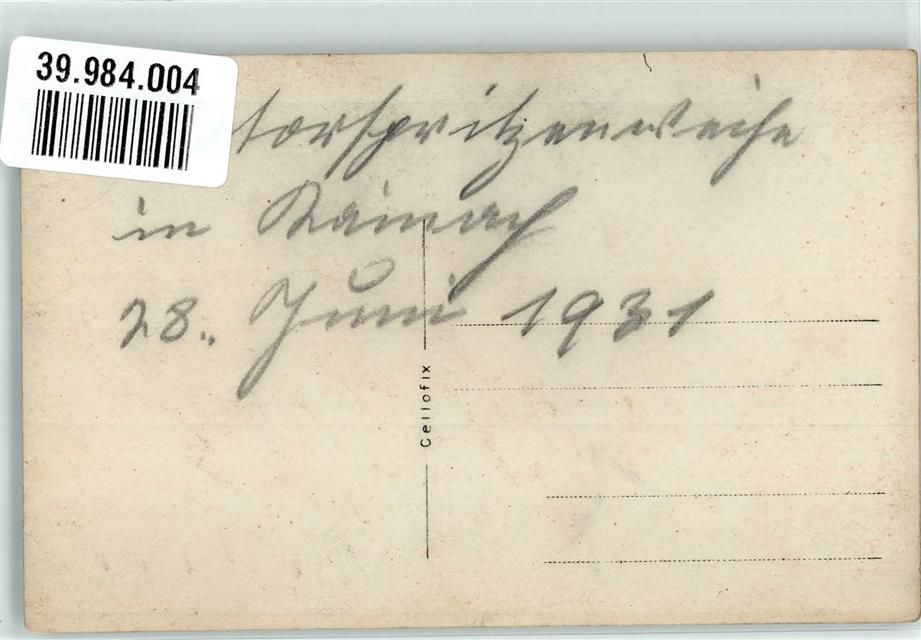 39.984.004
torspritzenweihe
in Kainach
28. Juni 1931
Cellofix